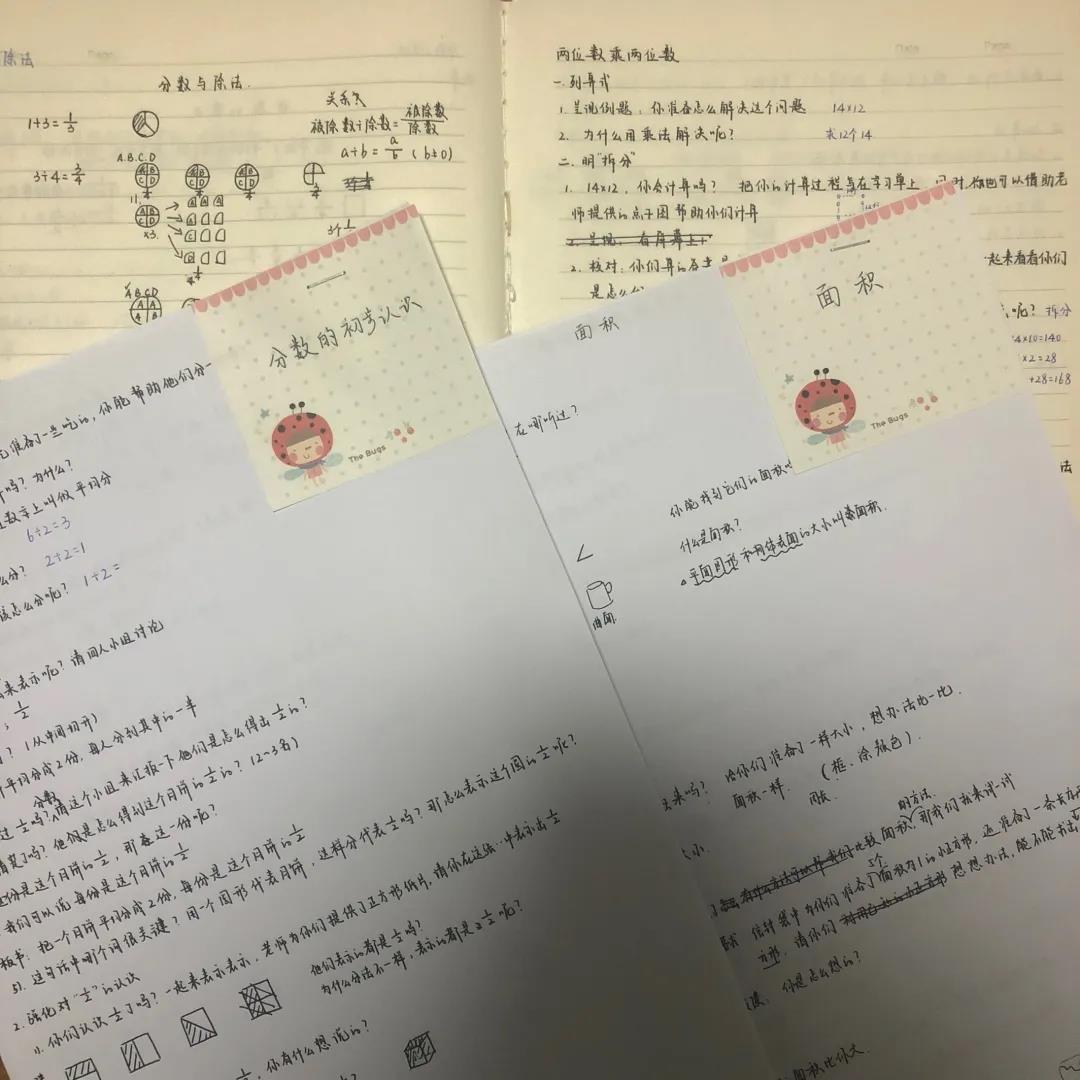 除法
分数与除法.
关系式
1÷3=1/3
被除数÷除数=被除数/除数
a÷b=a/b (b≠0)
A.B.C.D
3÷4=3/4
3个1/4
A.B.C.D
两位数乘两位数
一.列算式
1.呈现例题：你准备怎么解决这个问题 14×12
2.为什么用乘法解决呢？ 求12个14
二.明"拆分"
1. 14×12，你会计算吗？ 把你的计算过程写在学习单上，同时，你也可以借助老
师提供的点子图帮助你们计算
2.核对：你们算的
起来看看你们
是怎么
呢？拆分
4×10=140
×2=28
+28=168
法
分数的初步认识
The Bugs
面积
The Bugs
准备了一些吃的，你能帮助他们分一
吗？为什么？
数学上叫做平均分
6÷2=3
么分？ 2÷2=1
该怎么分呢？ 1÷2=
来表示呢？请四人小组讨论
1/2
？（从中间切开）
平均分成2份，每人分到其中的一半
分数
过1/2吗？请这个小组来汇报一下他们是怎么得出1/2的？
清楚了吗？他们是怎么得到这个月饼的1/2的？（2~3名）
份是这个月饼的1/2，那在这一份呢？
我们可以说每份是这个月饼的1/2
板书：把一个月饼平均分成2份，每份是这个月饼的1/2
3).这句话中哪个词很关键？用一个图形代表月饼，这样分代表1/2吗？那怎么表示这个圆的1/2呢？
2.强化对"1/2"的认识
1).你们认识1/2了吗？一起来表示表示，老师为你们提供了正方形纸片，请你在这张…中表示出1/2
他们表示的都是1/2吗？
为什么分法不一样，表示的都是1/2呢？
，你有什么想说的？
面积
在哪听过？
你能找到它们的面积
什么是面积？
平面图形和物体表面的大小叫做面积.
曲面
来吗？ 给你们准备了一样大小，想办法比一比.
面积一样. （框、涂颜色）
小.
的方法
比较面积，那我们就来试一试
5个
信封袋中为你们准备了面积为1的小正方形，还准备了一条长方
方形. 请你们想想办法，能不能
你是怎么想的？
面积比你大.